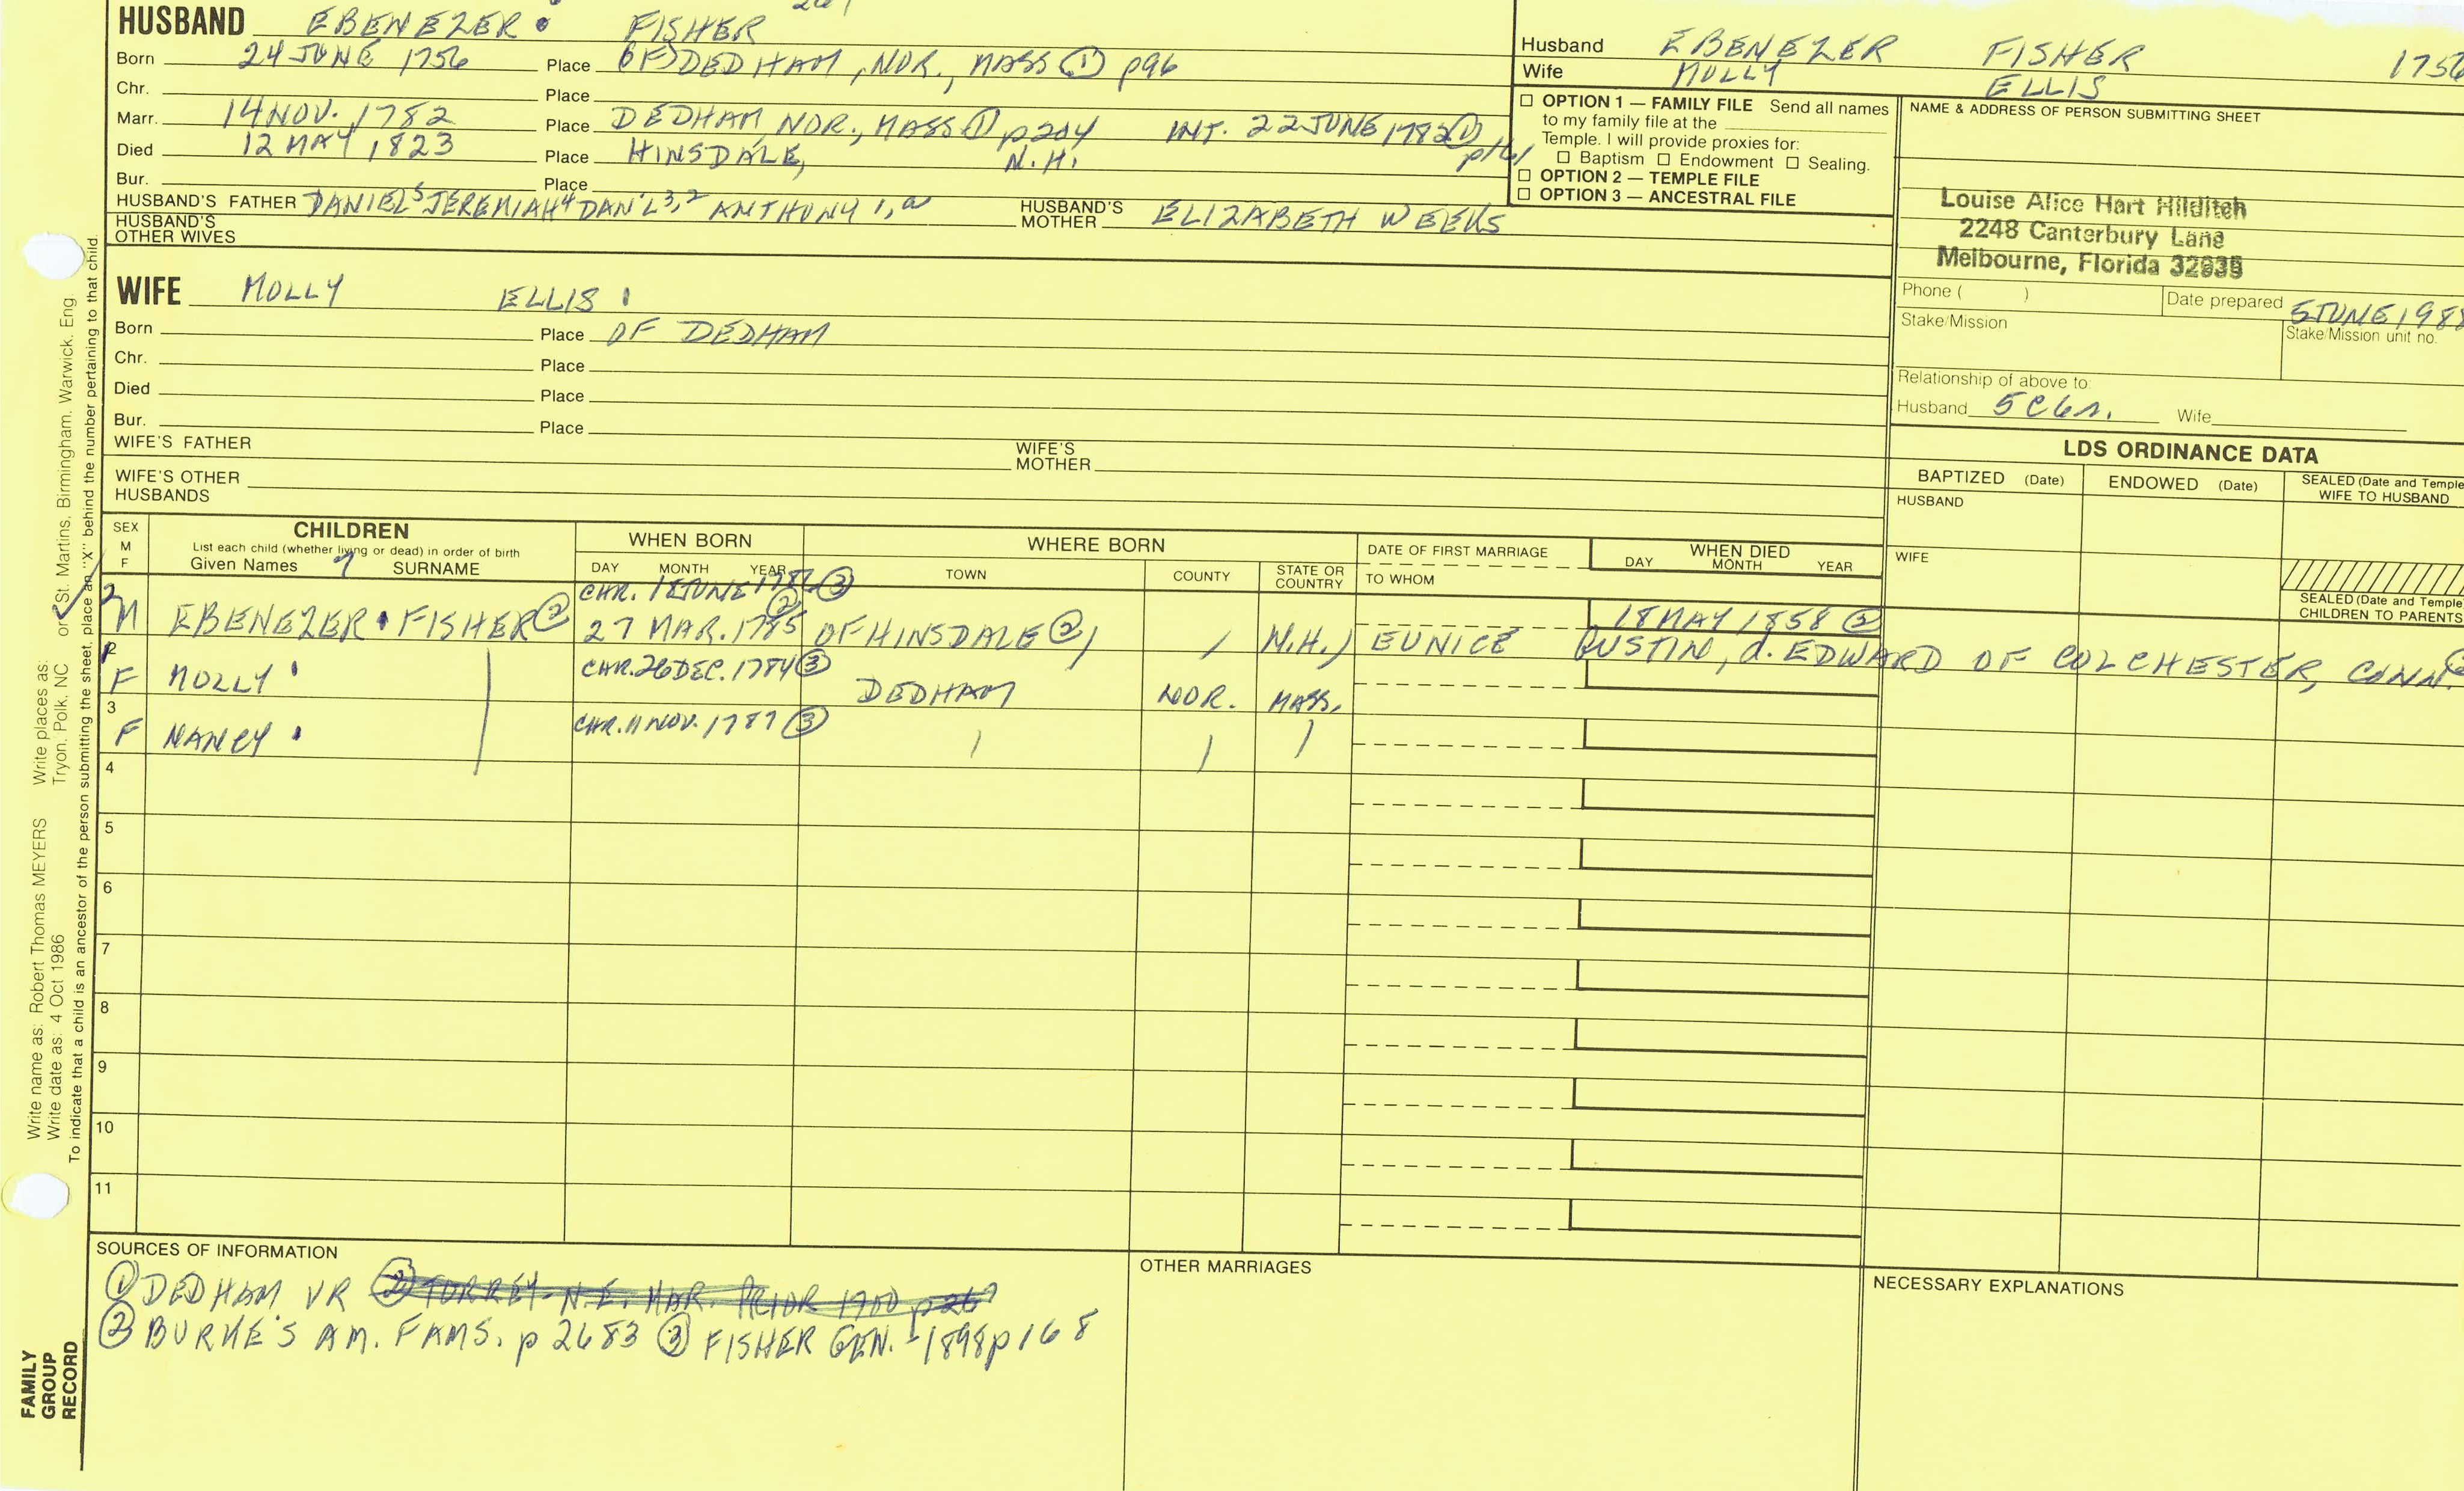 HUSBAND EBENEZER FISHER
Born 24 JUNE 1756 Place OF DEDHAM, NOR., MASS ① p96
Chr. Place
Marr. 14 NOV. 1782 Place DEDHAM, NOR., MASS ① p204 INT. 22 JUNE 1782 ① p161
Died 12 MAY 1823 Place HINSDALE, N.H.
Bur. Place
HUSBAND'S FATHER DANIEL5 JEREMIAH4 DAN'L3,2 ANTHONY 1, HUSBAND'S MOTHER ELIZABETH WEEKS
HUSBAND'S OTHER WIVES
WIFE MOLLY ELLIS
Born Place OF DEDHAM
Chr. Place
Died Place
Bur. Place
WIFE'S FATHER WIFE'S MOTHER
WIFE'S OTHER HUSBANDS
Husband EBENEZER FISHER 1756
Wife MOLLY ELLIS
☐ OPTION 1 — FAMILY FILE Send all names
to my family file at the
Temple. I will provide proxies for:
☐ Baptism ☐ Endowment ☐ Sealing.
☐ OPTION 2 — TEMPLE FILE
☐ OPTION 3 — ANCESTRAL FILE
NAME & ADDRESS OF PERSON SUBMITTING SHEET
Louise Alice Hart Hilditch
2248 Canterbury Lane
Melbourne, Florida 32935
Phone ( ) Date prepared 5 JUNE 198
Stake/Mission Stake/Mission unit no.
Relationship of above to:
Husband 5 Wife
LDS ORDINANCE DATA
BAPTIZED (Date) ENDOWED (Date) SEALED (Date and Temple
WIFE TO HUSBAND
HUSBAND
WIFE
SEALED (Date and Temple
CHILDREN TO PARENTS
SEX
M
F
CHILDREN
List each child (whether living or dead) in order of birth
Given Names SURNAME
WHEN BORN
DAY MONTH YEAR
WHERE BORN
TOWN COUNTY STATE OR COUNTRY
DATE OF FIRST MARRIAGE
TO WHOM
WHEN DIED
DAY MONTH YEAR
CHR. JUNE 1787 ③
M EBENEZER FISHER ② 27 MAR. 1785 ② OF HINSDALE ②, , N.H.) EUNICE AUSTIN, d. EDWARD OF COLCHESTER, CONN.
18 MAY 1858 ②
2
F MOLLY CHR. 26 DEC. 1784 ③ DEDHAM NOR. MASS.
3
F NANCY CHR. 11 NOV. 1787 ③
4
5
6
7
8
9
10
11
SOURCES OF INFORMATION
① DEDHAM VR ② TORREY - N.E. MAR. PRIOR 1700 p267
② BURKE'S AM. FAMS. p 2683 ③ FISHER GEN. - 1898 p168
OTHER MARRIAGES
NECESSARY EXPLANATIONS
FAMILY
GROUP
RECORD
Write name as: Robert Thomas MEYERS Write places as: or St. Martins, Birmingham, Warwick, Eng.
Write date as: 4 Oct 1986 Tryon, Polk, NC
To indicate that a child is an ancestor of the person submitting the sheet, place an "X" behind the number pertaining to that child.